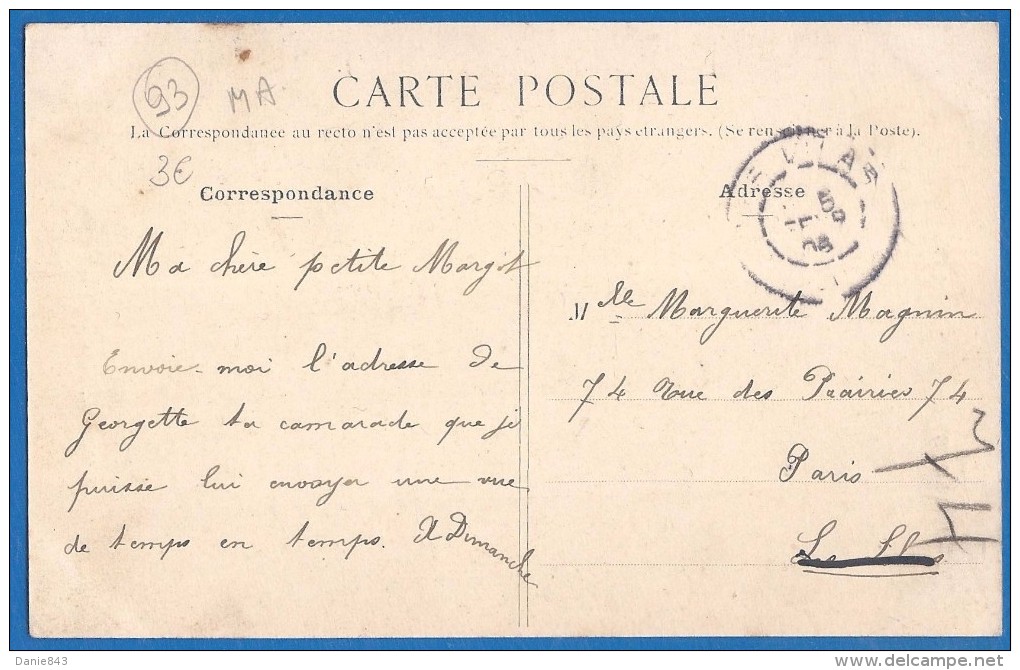 93
MA
CARTE POSTALE
La Correspondance au recto n'est pas acceptée par tous les pays étrangers. (Se renseigner à la Poste).
3€
Correspondance
Ma chère petite Margot
Envoie-moi l'adresse de
Georgette ta camarade que je
puisse lui envoyer une vue
de temps en temps. X Dimanche
Adresse
Mlle Marguerite Magnin
74 rue des Prairies 74
Paris
Danie843
delcampe.net